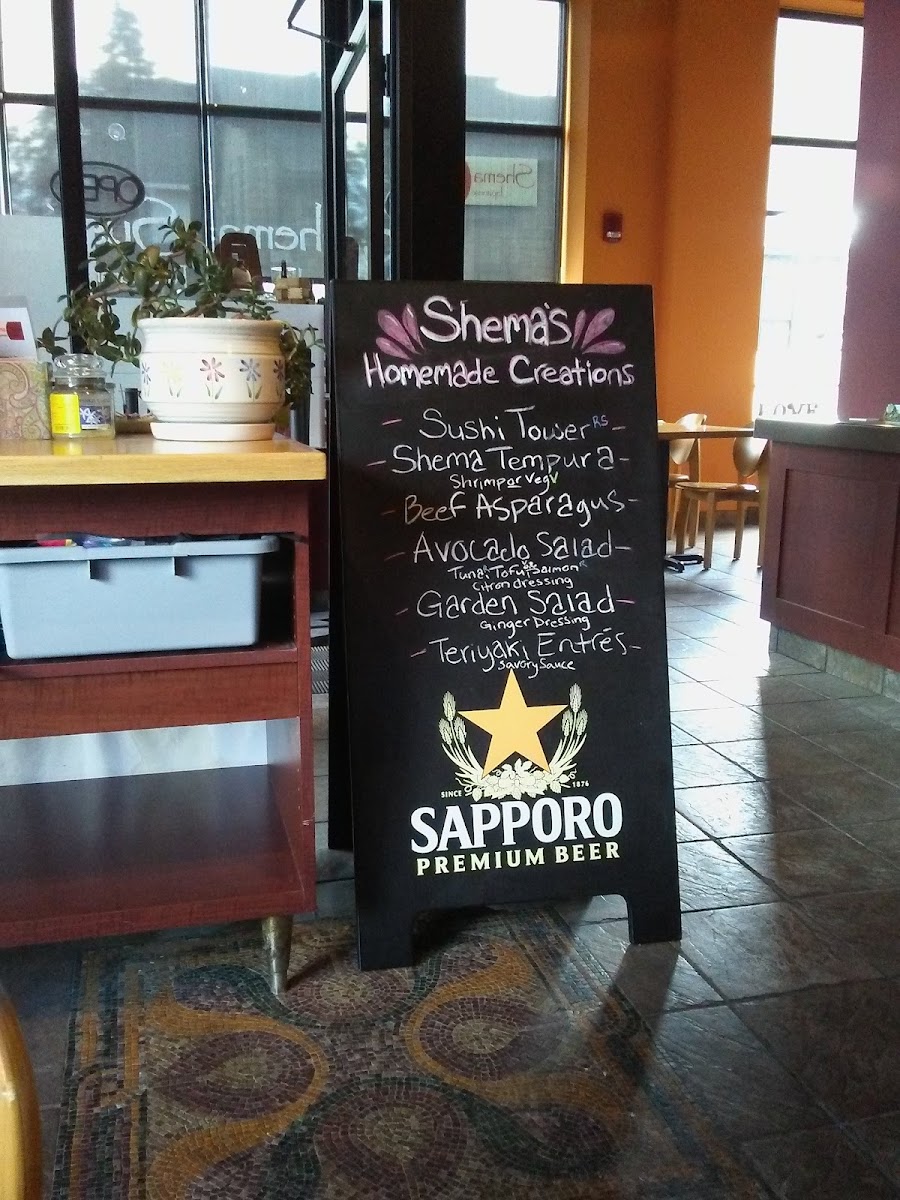 OPE
Shema
hema Su
Shema's
Homemade Creations
- Sushi Tower RS -
- Shema Tempura -
Shrimp or Veg V
- Beef Asparagus -
- Avocado Salad -
Tuna, Tofu, Salmon
Citron dressing
- Garden Salad -
Ginger Dressing
- Teriyaki Entrés -
Savory Sauce
SINCE 1876
SAPPORO
PREMIUM BEER